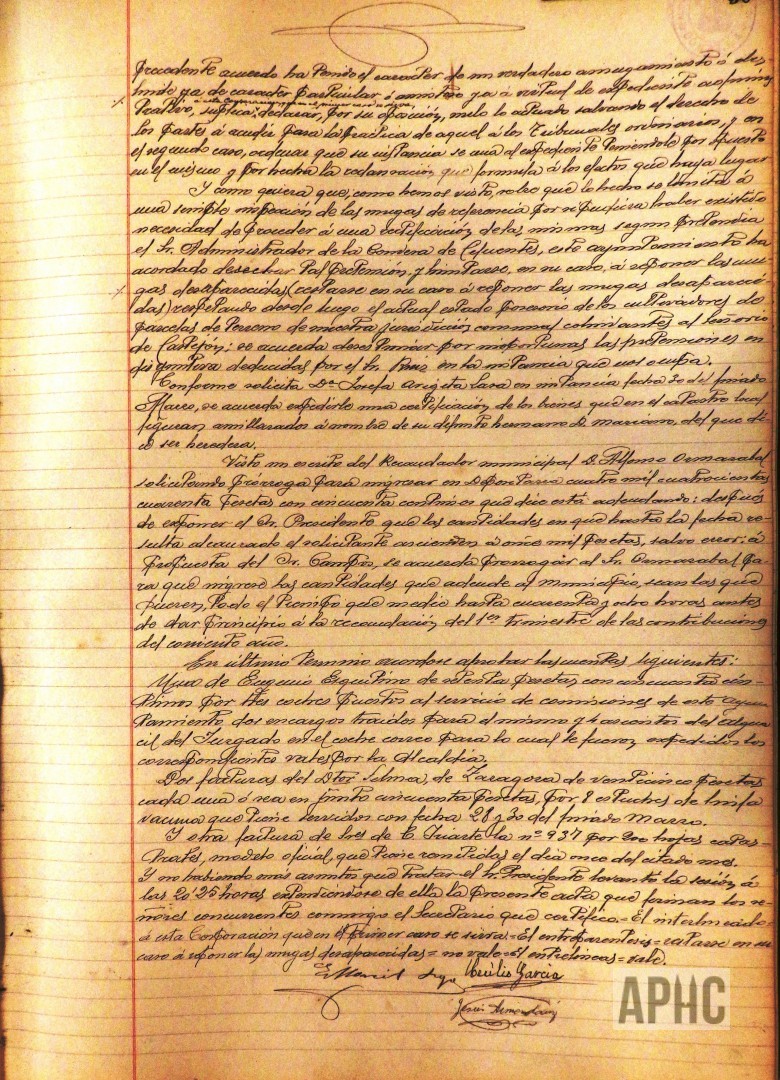 precedente acuerdo ha tenido el carácter de un verdadero amugamiento ó des-
linde ya de carácter particular ó amistoso ya á virtud de expediente adminis-
á esta Corporación que en el primer caso se sirva,
trativo, suplica; declarar, por su oposición, nulo lo actuado salvando el derecho de
las partes á acudir para la práctica de aquel á los Tribunales ordinarios, y en
el segundo caso, ordenar que su instancia se una al expediente teniéndole por opuesto
en el mismo y por hecha la reclamación que formula á los efectos que haya lugar
Y como quiera que, como hemos visto, no los que lo hecho se limita á
una simple inspección de las mugas de referencia por si pudiera haber existido
necesidad de proceder á una rectificación de las mismas segun pretendia
el Sr. Administrador de la Condesa de Cifuentes, este ayuntamiento ha
acordado desechar tal pretension, y limitarse, en su caso, á reponer las mu-
gas desaparecidas (restarse en su caso á reponer las mugas desapareci-
das) respetando desde luego el actual estado posesorio de los cultivadores de
parcelas de terreno de nuestra jurisdicción comunal colindantes al Señorio
de Castejón; se acuerda desestimar por inoportunas las pretensiones en
definitiva deducidas por el Sr. Ruiz en la instancia que nos ocupa.
Conforme solicita Da Josefa Arigita Lasa en instancia fecha 30 del finado
Marzo, se acuerda expedirle una certificación de los bienes que en el catastro local
figuran amillarados á nombre de su difunto hermano D. Mariano, del que di-
ce ser heredera.
Visto un escrito del Recaudador municipal D. Alfonso Ormazabal
solicitando prórroga para ingresar en Depositaria cuatro mil cuatrocientas
cuarenta pesetas con cincuenta centimos que dice está adeudando: después
de exponer el Sr. Presidente que las cantidades en que hasta la fecha re-
sulta alcanzado el solicitante ascienden á once mil pesetas, salvo error: á
propuesta del Sr. Campos, se acuerda prorrogar al Sr. Ormazabal pa-
ra que ingrese las cantidades que adeude al municipio, sean las que
fueren, todo el tiempo que medie hasta cuarenta y ocho horas antes
de dar principio á la recaudación del 1er trimestre de las contribuciones
del corriente año.
En último termino acordose aprobar las cuentas siguientes:
Una de Eugenio Esquitino de setenta pesetas con cincuenta cén-
timos por tres coches puestos al servicio de comisiones de este ayun-
tamiento, dos encargos traidos para el mismo y 4 asientos del alguac-
cil del Juzgado en el coche correo para lo cual le fueron expedidos los
correspondientes vales por la Alcaldía.
Dos facturas del Dtor Selma, de Zaragoza de venticinco pesetas
cada una ó sea en junto cincuenta pesetas, por 8 estuches de linfa
vacuna que tiene servidos con fecha 28 y 30 del finado Marzo.
Y otra factura de Sres de E. Iriarte la nº 937 por 200 hojas catas-
trales, modelo oficial, que tiene remitidas el dia once del citado mes.
Y no habiendo más asuntos que tratar el Sr. Presidente levantó la sesión á
las 20'25 horas extendiéndose de ella la presente acta que firman los se-
ñores concurrentes conmigo el Secretario que certifico.=El interlineado
á esta Corporación que en el primer caso se sirva=El entreparentesis=restarse en su
caso á reponer las mugas desaparecidas=no vale=El entrelineas=vale.
Cecilio Garcia
APHC